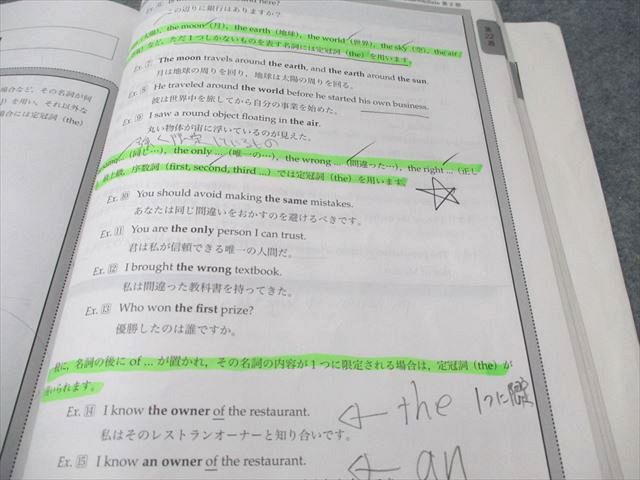 第2部
第22講
Ex. ⑥
here?
この辺りに銀行はありますか?
(太陽), the moon(月), the earth(地球), the world(世界), the sky(空), the air
など、ただ1つしかないものを表す名詞には定冠詞(the)を用います。
Ex. ⑦ The moon travels around the earth, and the earth around the sun.
月は地球の周りを回り、地球は太陽の周りを回る。
Ex. ⑧ He traveled around the world before he started his own business.
彼は世界中を旅してから自分の事業を始めた。
Ex. ⑨ I saw a round object floating in the air.
丸い物体が宙に浮いているのが見えた。
(同じ…), the only ...(唯一の…), the wrong ...(間違った…), the right ...(正し
最上級, 序数詞(first, second, third ...)では定冠詞(the)を用います。
Ex. ⑩ You should avoid making the same mistakes.
あなたは同じ間違いをおかすのを避けるべきです。
Ex. ⑪ You are the only person I can trust.
君は私が信頼できる唯一の人間だ。
Ex. ⑫ I brought the wrong textbook.
私は間違った教科書を持ってきた。
Ex. ⑬ Who won the first prize?
優勝したのは誰ですか。
に、名詞の後に of ... が置かれ、その名詞の内容が1つに限定される場合は、定冠詞(the)が
用いられます。
Ex. ⑭ I know the owner of the restaurant.
← the 1つに限定
私はそのレストランオーナーと知り合いです。
Ex. ⑮ I know an owner of the restaurant.
← an
場合など、その名詞が何
を用い、それ以外な
場合には定冠詞(the)